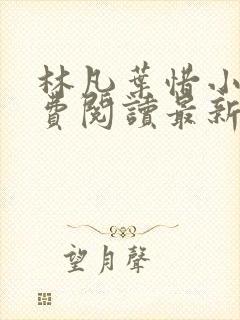 林凡葉惜小
費閱讀最新
望月聲